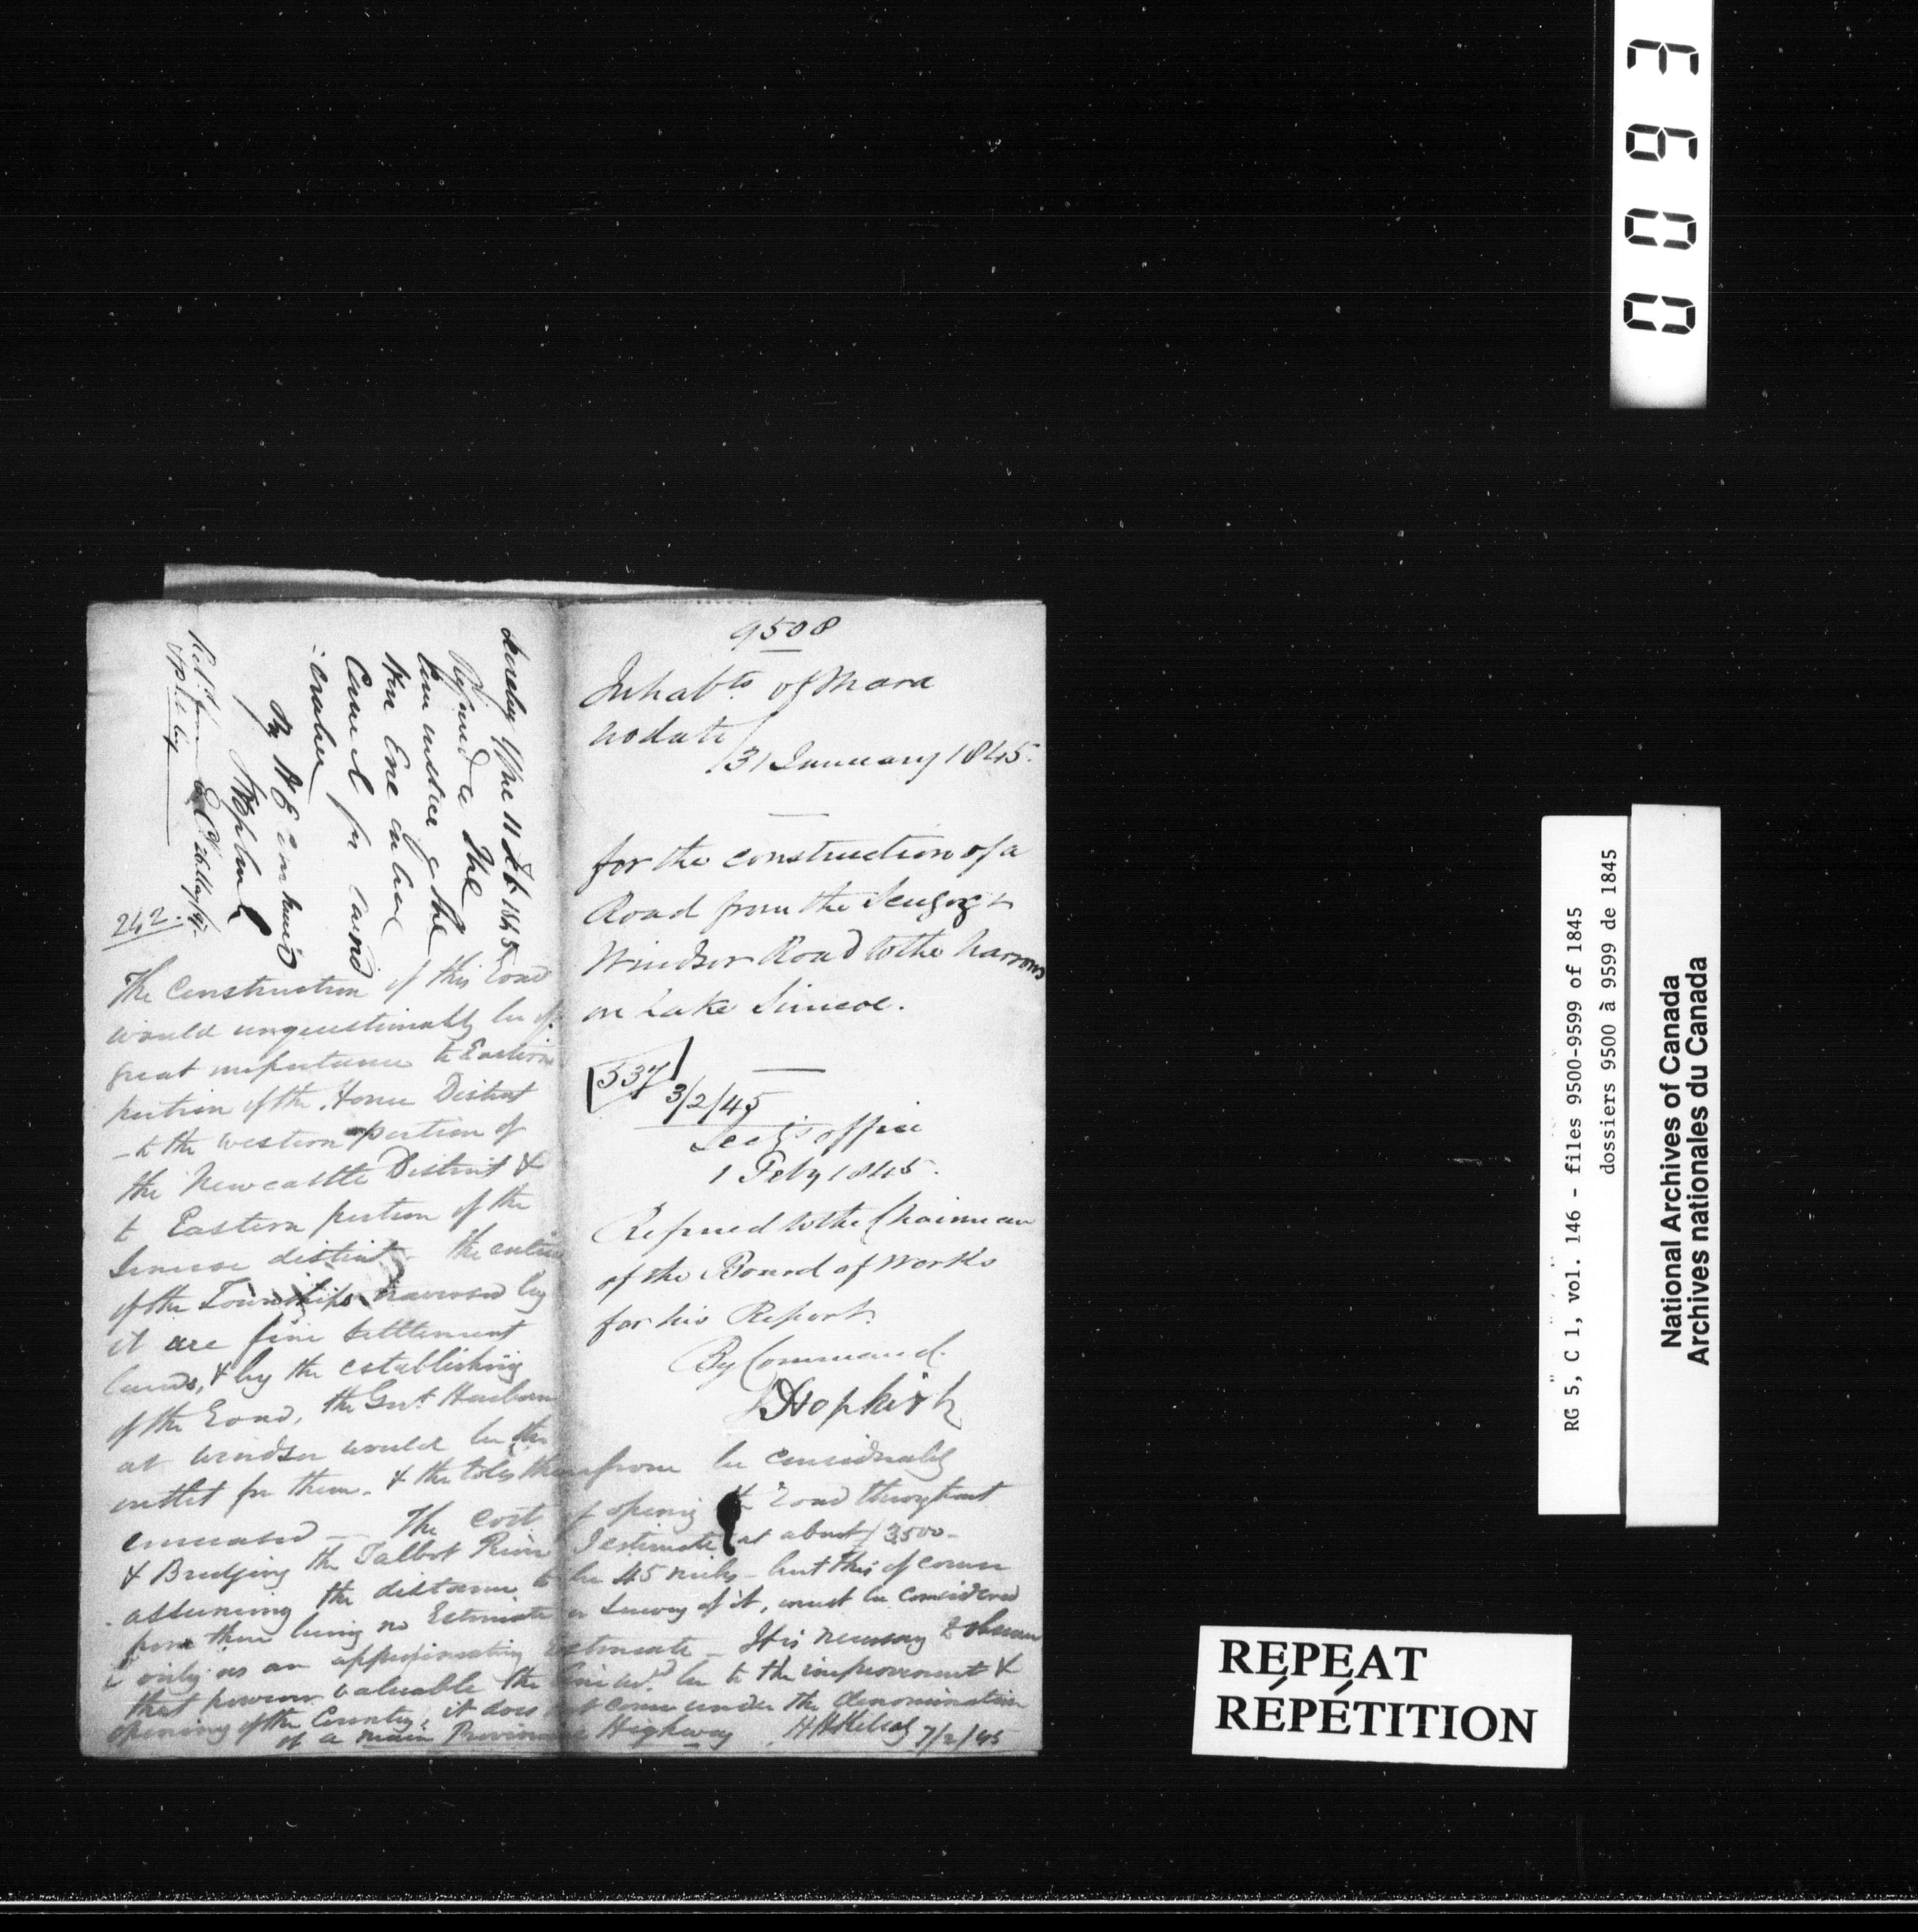 0093
9508
Inhabts of Mara
no date
31 January 1845.
for the construction of a
Road from the Scugog &
Windsor Road to the Narrows
on Lake Simcoe.
537
3/2/45
Secys office
1 Feby 1845.
Referred to the Chairman
of the Board of Works
for his Report.
By Command.
Hopkirk
11 Feb 1845
Referred to the
Exe
Council for
By
Hopkirk
242.
The Construction of this Road
would unquestionably be of
great importance to Eastern
portion of the Home District
- to the western portion of
the Newcastle District &
to Eastern portion of the
Simcoe district - the entire
of the Townships traversed by
it are fine settlement
lands, & by the establishing
of the Road, the Govt Harbour
at Windsor would be the
outlet for them - & the tolls therefrom be considerably
encreased - The cost of opening the Road throughout
& Bridging the Talbot River I estimate at about £3500 -
assuming the distance to be 45 miles - but this of course
from there being no Estimate or Survey of it, must be considered
only as an approximating estimate - It is necessary to observe
that however valuable the line wd be to the improvement &
opening of the Country, it does not come under the denomination
of a main Provincial Highway H H Killaly 7/2/45
RG 5, C 1, vol. 146 - files 9500-9599 of 1845
dossiers 9500 à 9599 de 1845
National Archives of Canada
Archives nationales du Canada
REPEAT
RÉPÉTITION